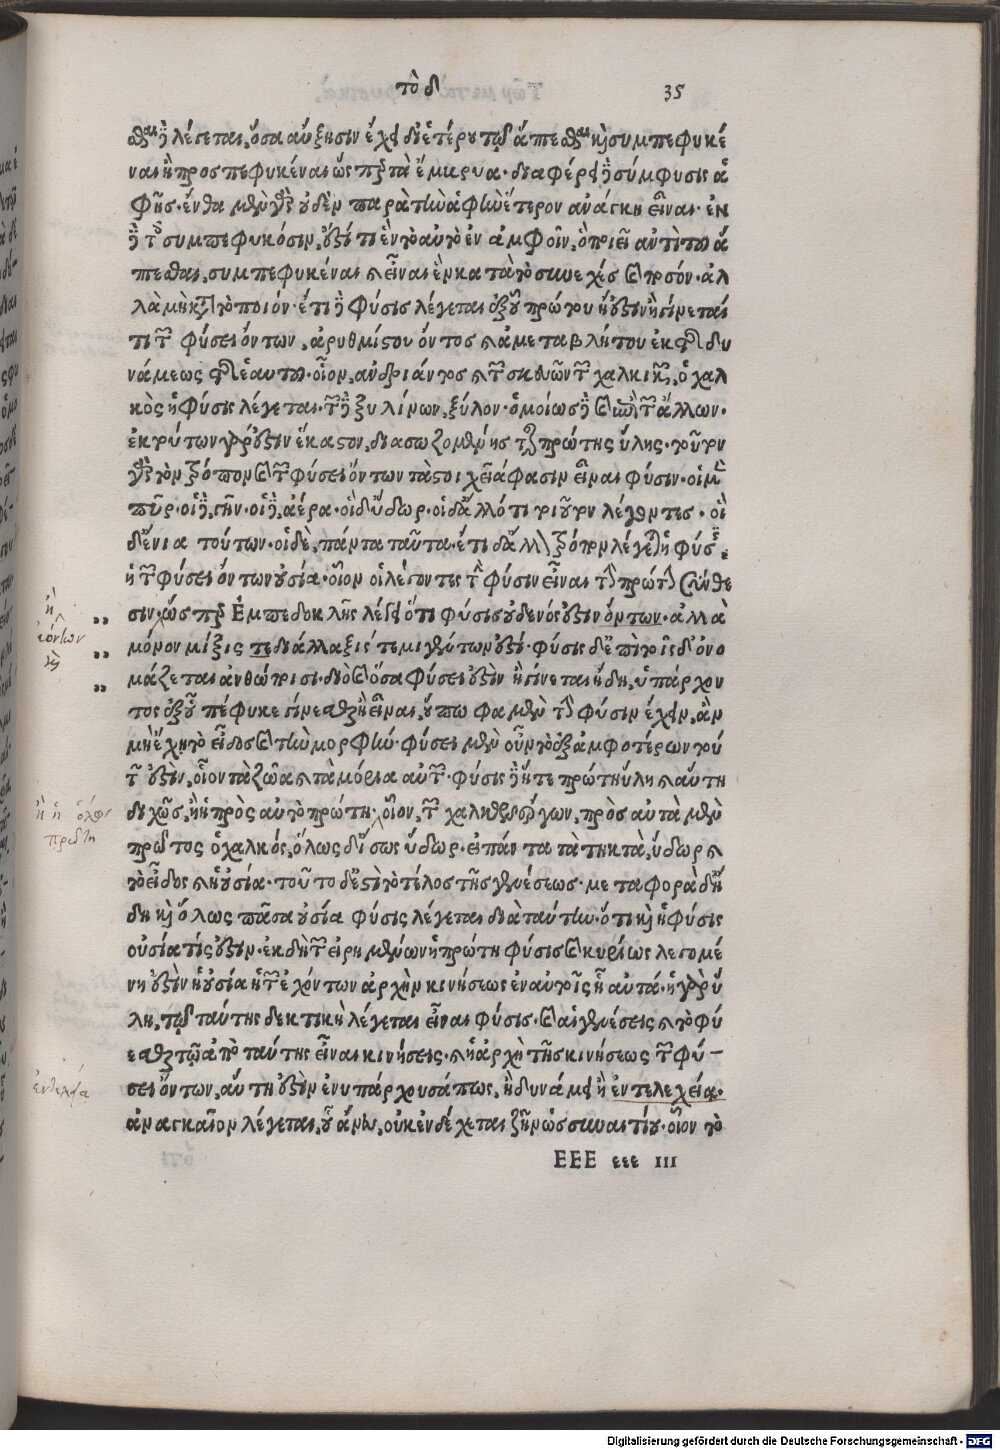 τὸ δ
35
σθαι δὲ λέγεται, ὅσα αὔξησιν ἔχει δι' ἑτέρου τῷ ἅπτεσθαι καὶ συμπεφυκέ
ναι ἢ προσπεφυκέναι ὥσπερ τὰ ἔμβρυα. διαφέρει δὲ σύμφυσις ἁ
φῆς. ἔνθα μὲν γὰρ οὐδὲν παρὰ τὴν ἁφὴν ἕτερον ανάγκη εἶναι. ἐν
δὲ τοῖς συμπεφυκόσιν, ἔστι τι ἓν τὸ αὐτὸ ἐν ἀμφοῖν, ὃ ποιεῖ αντὶ τοῦ ἅ
πτεσθαι, συμπεφυκέναι καὶ εἶναι ἓν κατὰ τὸ συνεχὲς καὶ ποσόν. ἀλ
λὰ μὴ κατὰ τὸ ποιόν. ἔτι δὲ φύσις λέγεται ἐξ οὗ πρώτου ἢ ἔστιν ἢ γίνεταί
τι τῶν φύσει όντων, ἀρυθμίστου όντος καὶ ἀμεταβλήτου εκ τῆς δυ
νάμεως τῆς ἑαυτοῦ. οἷον, ανδριάντος καὶ τῶν σκευῶν τῶν χαλκικῶν, ὁ χαλ
κὸς ἡ φύσις λέγεται. τῶν δὲ ξυλίνων, ξύλον. ὁμοίως δὲ καὶ ἐπὶ τῶν ἄλλων.
ἐκ τούτων γάρ ἐστιν ἕκαστον, διασωζομένης τῆς πρώτης ὕλης. τοῦτον
γὰρ τὸν τρόπον καὶ τῶν φύσει όντων τὰ στοιχεῖά φασιν εἶναι φύσιν. οἱ μὲν
πῦρ. οἱ δὲ, γῆν. οἱ δὲ, ἀέρα. οἱ δ' ὕδωρ. οἱ δ' ἄλλό τι τοιοῦτον λέγοντες. οἱ
δ' ἔνια τούτων. οἱ δὲ, πάντα ταῦτα. ἔτι δ' ἄλλον τρόπον λέγεται ἡ φύσις,
ἡ τῶν φύσει όντων οὐσία. οἷον οἱ λέγοντες τὴν φύσιν εἶναι τὴν πρώτην σύνθε
σιν. ὥσπερ Ἐμπεδοκλῆς λέγει ὅτι φύσις οὐδενός ἐστιν όντων. ἀλλὰ
μόνον μίξις τε διάλλαξίς τε μιγέντων ἐστί. φύσις δ' ἐπὶ τοῖς δ' ὀνο
μάζεται ἀνθρώποισι. διὸ καὶ ὅσα φύσει ἐστὶν ἢ γίνεται ἤδη, ὑπάρχον
τος ἐξ οὗ πέφυκε γίνεσθαι ἢ εἶναι, οὔπω φαμὲν τὴν φύσιν ἔχειν, ἂν
μὴ ἔχῃ τὸ εἶδος καὶ τὴν μορφήν. φύσει μὲν οὖν τὸ ἐξ ἀμφοτέρων τού
των ἐστὶν, οἷον τὰ ζῶα καὶ τὰ μόρια αὐτῶν. φύσις δὲ ἥτε πρώτη ὕλη καὶ αὕτη
διχῶς, ἢ ἡ πρὸς αὐτὸ πρώτη. οἷον, τῶν χαλκῶν ἔργων, πρὸς αὐτὰ μὲν
πρῶτος ὁ χαλκός, ὅλως δ' ἴσως ὕδωρ. εἰ πάντα τὰ τηκτὰ, ὕδωρ καὶ
τὸ εἶδος καὶ ἡ οὐσία. τοῦτο δ' ἐστὶ τὸ τέλος τῆς γενέσεως. μεταφορᾷ δ' ἤ
δη καὶ ὅλως πᾶσα οὐσία φύσις λέγεται διὰ ταύτην. ὅτι καὶ ἡ φύσις
οὐσία τίς ἐστιν. ἐκ δὴ τῶν εἰρημένων ἡ πρώτη φύσις καὶ κυρίως λεγομέ
νη ἐστὶν ἡ οὐσία ἡ τῶν ἐχόντων ἀρχὴν κινήσεως ἐν αὐτοῖς ᾗ αὐτά. ἡ γὰρ ὕ
λη, τῷ ταύτης δεκτικὴ λέγεται εἶναι φύσις. καὶ αἱ γενέσεις καὶ τὸ φύ
εσθαι τῷ ἀπὸ ταύτης εἶναι κινήσεις. καὶ ἡ ἀρχὴ τῆς κινήσεως τῶν φύ–
σει όντων, αὕτη ἐστὶν ἐνυπάρχουσά πως, ἢ δυνάμει ἢ ἐντελεχείᾳ.
ἀναγκαῖον λέγεται, οὗ ἄνευ, οὐκ ενδέχεται ζῆν ὡς συναιτίου. οἷον τὸ
EEE εεε III
ἢ
ἐόντων
ἢ ἡ ὅλως
πρώτη
ἐντελεχεία
Digitalisierung gefördert durch die Deutsche Forschungsgemeinschaft - DFG